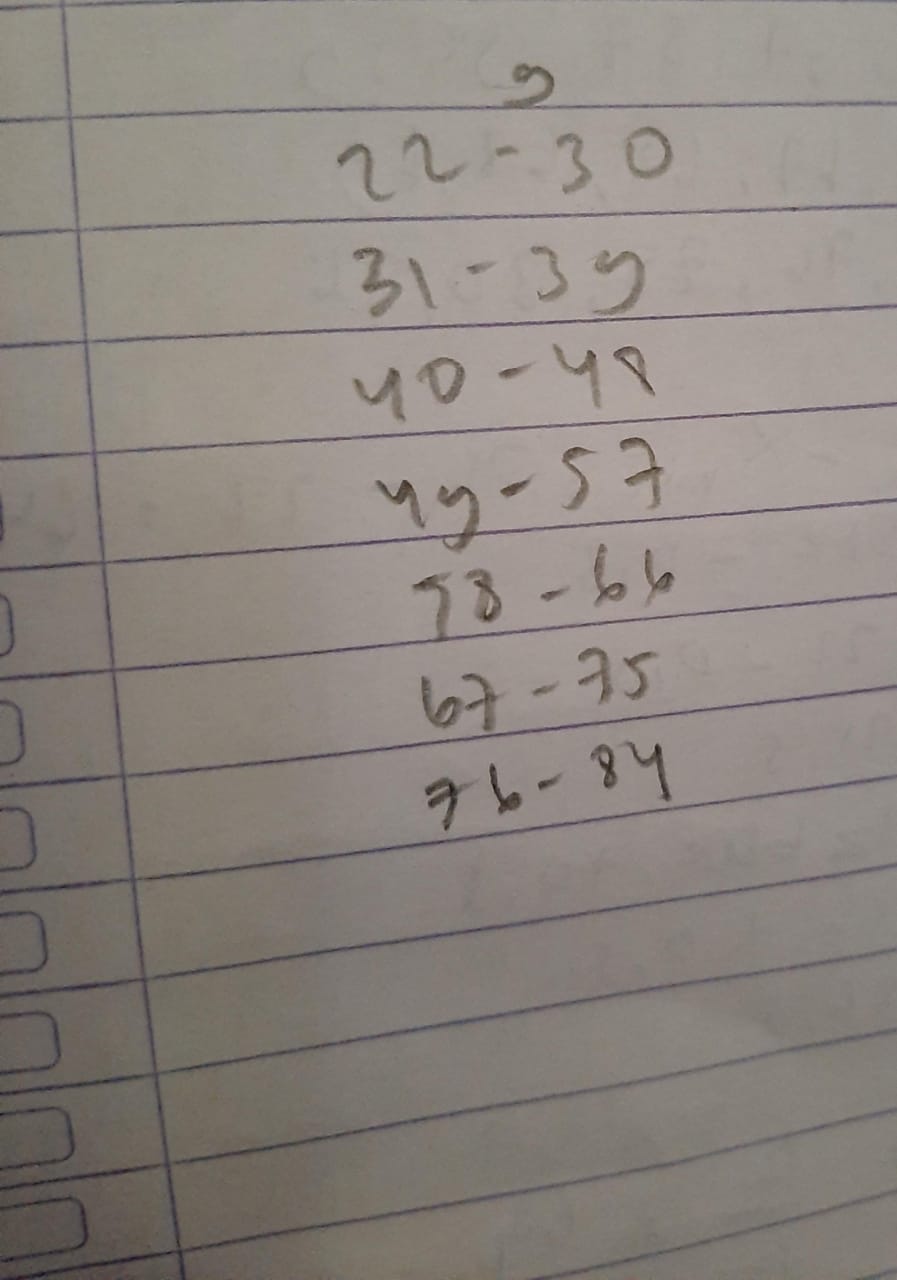 9
22-30
31-39
40-48
49-57
58-66
67-75
76-84